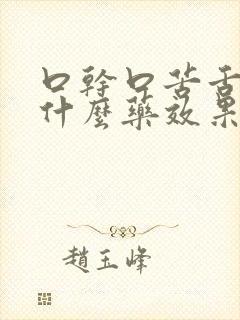 口幹口苦舌
什麼藥效果
趙玉峰